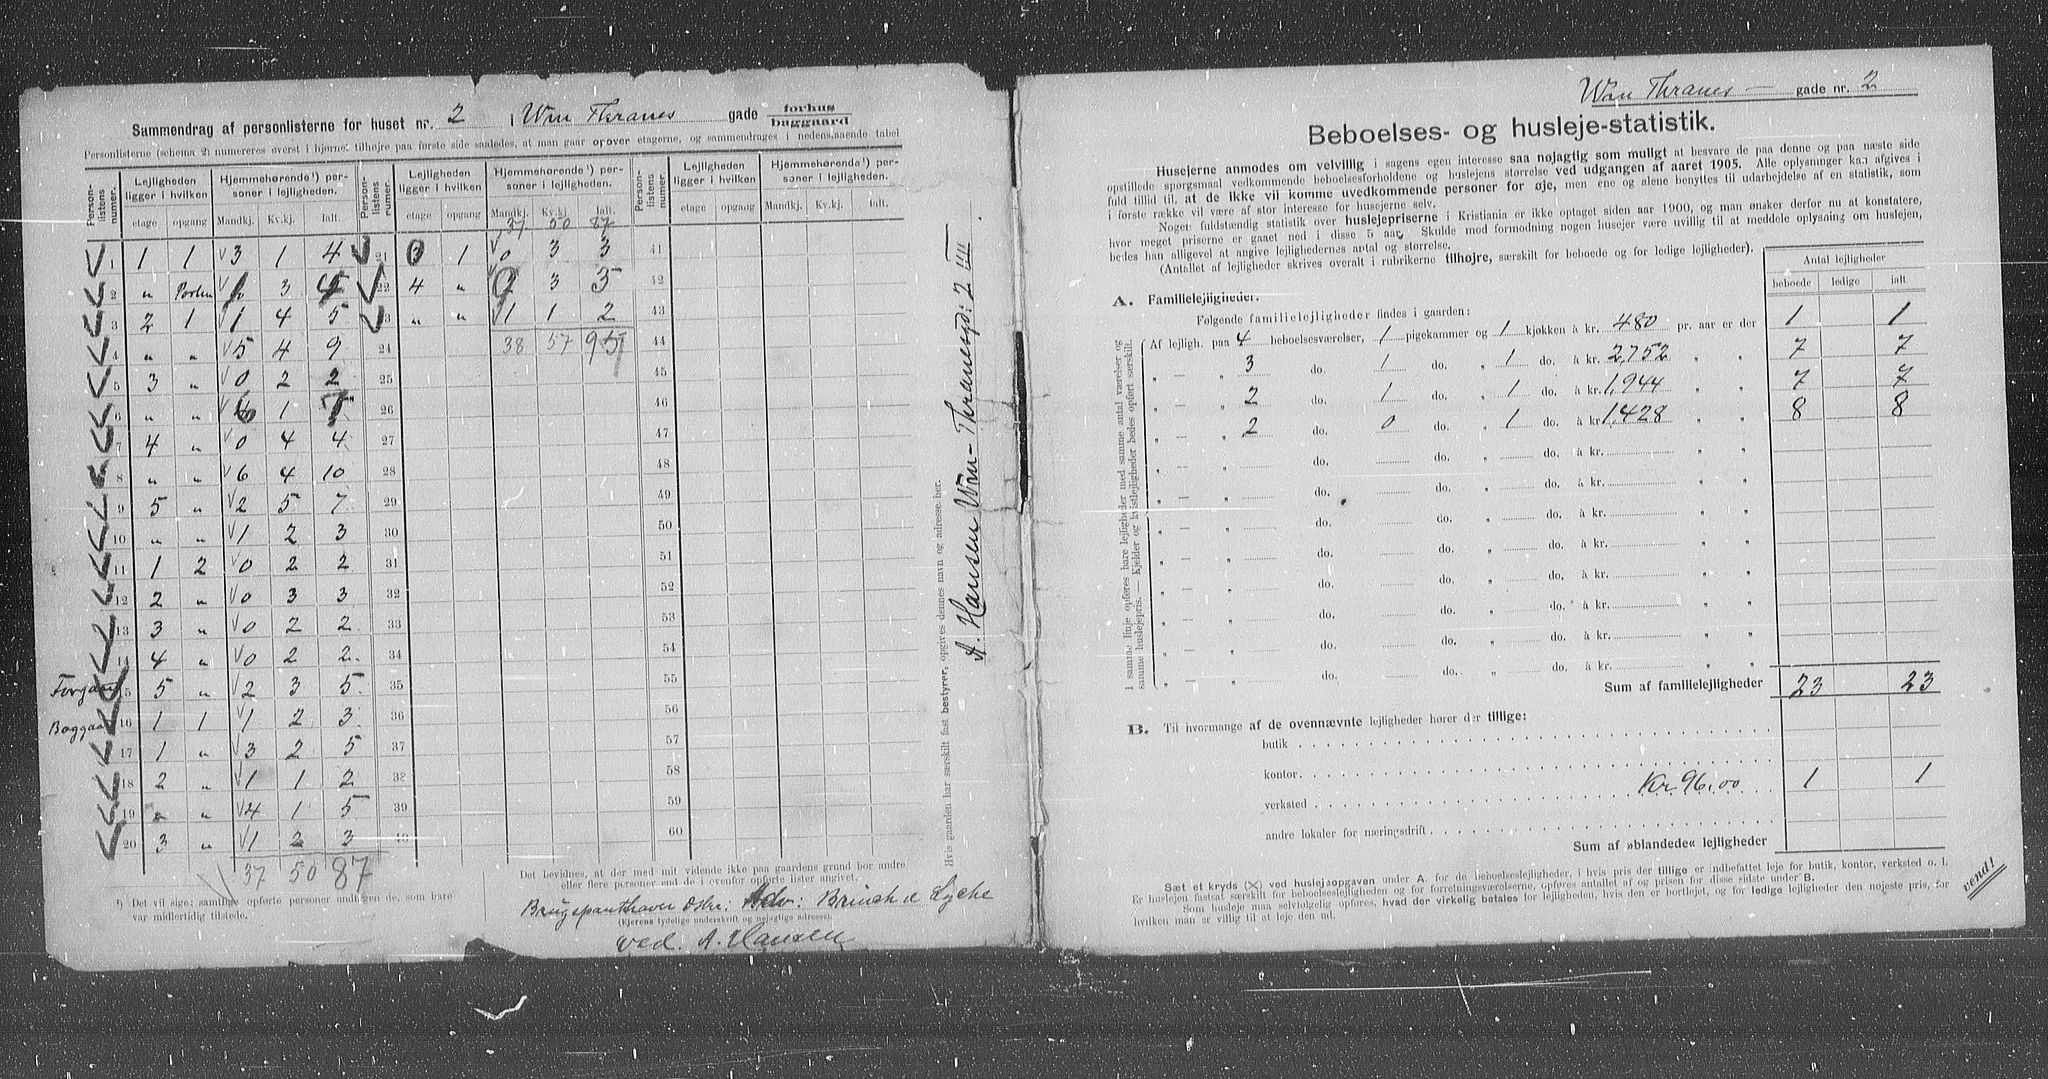 Sammendrag af personlisterne for huset nr. 2 i Wm Thranes gade forhus
baggaard
Personlisterne (schema 2) numereres øverst i hjørnet tilhøjre paa første side saaledes, at man gaar opover etagerne, og sammendrages i nedenstaaende tabel
Person-listens numer. Lejligheden ligger i hvilken Hjemmehørende¹) personer i lejligheden. Person-listens numer. Lejligheden ligger i hvilken Hjemmehørende¹) personer i lejligheden. Person-listens numer. Lejligheden ligger i hvilken Hjemmehørende¹) personer i lejligheden.
etage opgang Mandkj. Kv.kj. Ialt. etage opgang Mandkj. Kv.kj. Ialt. etage opgang Mandkj. Kv.kj. Ialt.
37 50 87
1 1 1 3 1 4 21 3 1 0 3 3 41
2 " Porten 1 3 4 22 4 " 0 3 3 42
3 2 1 1 4 5 23 " " 1 1 2 43
4 " " 5 4 9 24 38 57 95 44
5 3 " 0 2 2 25 45
6 " " 6 1 7 26 46
7 4 " 0 4 4 27 47
8 " " 6 4 10 28 48
9 5 " 2 5 7 29 49
10 " " 1 2 3 30 50
11 1 2 0 2 2 31 51
12 2 " 0 3 3 32 52
13 3 " 0 2 2 33 53
14 4 " 0 2 2 34 54
15 5 " 2 3 5 35 55
16 1 1 1 2 3 36 56
17 1 " 3 2 5 37 57
18 2 " 1 1 2 38 58
19 " " 4 1 5 39 59
20 3 " 1 2 3 40 60
37 50 87
¹) Det vil sige: samtlige opførte personer undtagen de, som bare
var midlertidig tilstede.
Det bevidnes, at der med mit vidende ikke paa gaardens grund bor andre
eller flere personer end de i ovenfor opførte lister angivet.
Brugspanthaver Adv: Brinch &
(Ejerens tydelige underskrift og nøjagtige adresse).
ved. A. Hansen
Hvis gaarden har særskilt fast bestyrer, opgives dennes navn og adresse her.
A. Hansen Wm-Thranesgd: 2 III
Wm Thranes gade nr. 2
Beboelses- og husleje-statistik.
Husejerne anmodes om velvillig i sagens egen interesse saa nøjagtig som muligt at besvare de paa denne og paa næste side
opstillede spørgsmaal vedkommende beboelsesforholdene og huslejens størrelse ved udgangen af aaret 1905. Alle oplysninger kan afgives i
fuld tillid til, at de ikke vil komme uvedkommende personer for øje, men ene og alene benyttes til udarbejdelse af en statistik, som
i første række vil være af stor interesse for husejerne selv.
Nogen fuldstændig statistik over huslejepriserne i Kristiania er ikke optaget siden aar 1900, og man ønsker derfor nu at konstatere,
hvor meget priserne er gaaet ned i disse 5 aar. Skulde mod formodning nogen husejer være uvillig til at meddele oplysning om huslejen,
bedes han alligevel at angive lejlighedernes antal og størrelse.
(Antallet af lejligheder skrives overalt i rubrikerne tilhøjre, særskilt for beboede og for ledige lejligheder).
Antal lejligheder
beboede ledige ialt
A. Familielejligheder.
Følgende familielejligheder findes i gaarden:
Af lejligh. paa 4 beboelsesværelser, 1 pigekammer og 1 kjøkken à kr. 480 pr. aar er der 1 1
" — " 3 do. 1 do. " 1 do. à kr. 2,752 " " 7 7
" — " 2 do. 1 do. " 1 do. à kr. 1,944 " " 7 7
" — " 2 do. 0 do. " 1 do. à kr. 1,428 " " 8 8
" — " do. do. " do. à kr. " "
" — " do. do. " do. à kr. " "
" — " do. do. " do. à kr. " "
" — " do. do. " do. à kr. " "
" — " do. do. " do. à kr. " "
" — " do. do. " do. à kr. " "
" — " do. do. " do. à kr. " "
" — " do. do. " do. à kr. " "
I samme linje opføres bare lejligheder med samme antal værelser og
samme huslejepris. — Kjelder og kvistlejligheder bedes opført særskilt.
Sum af familielejligheder 23 23
B. Til hvormange af de ovennævnte lejligheder hører der tillige:
butik
kontor
verksted Kr 96,00 1 1
andre lokaler for næringsdrift
Sum af »blandede« lejligheder
Sæt et kryds (X) ved huslejeopgaven under A. for de beboelseslejligheder, i hvis pris der tillige er indbefattet leje for butik, kontor, verksted o. l.
Er huslejen fastsat særskilt for beboelseslejligheden og for forretningsværelserne, opføres antallet af og prisen for disse sidste under B.
Som husleje maa selvfølgelig opføres, hvad der virkelig betales for lejligheden, hvis den er bortlejet, og for ledige lejligheder den nøjeste pris, for
hvilken man er villig til at leje den ud.
vend!